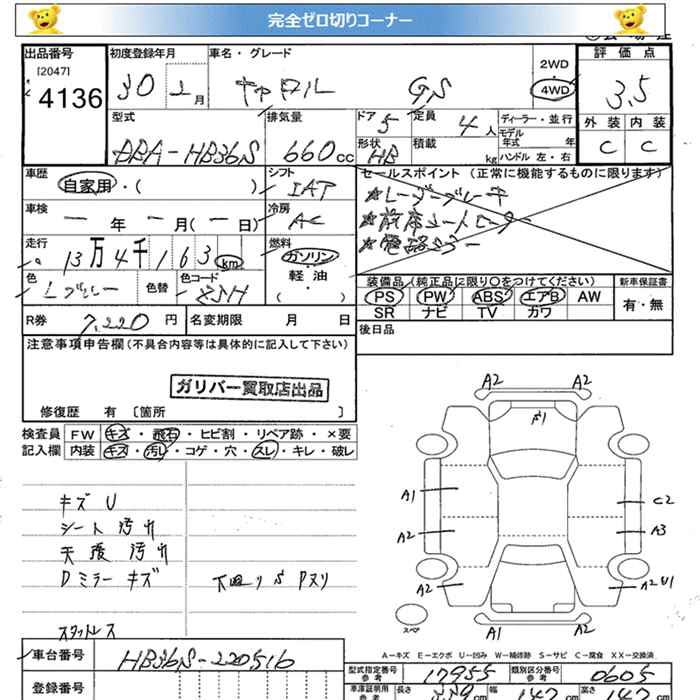 完全ゼロ切りコーナー
出品番号 初度登録年月 車名・グレード 2WD 評価点
[2047] 4136 30 2月 キャロル GS 4WD 3.5
型式 排気量 ドア 5 定員 4人 ディーラー・並行 外装 内装
DBA-HB36S 660cc 形状 HB 積載 kg モデル年式 年 C C
ハンドル 左・右
車歴 自家用・( ) シフト IAT セールスポイント(正常に機能するものに限ります)
★レーダーブレーキ
車検 ー年 ー月(ー日) 冷房 AC ★前席シートヒーター
走行 13万4千163km 燃料 ガソリン ★電格ミラー
軽・油
( )
色 色替 色コード 装備品(純正品に限り○をつけてください) 新車保証書
PS PW ABS エアB AW 有・無
SR ナビ TV カワ
R券 7,220円 名変期限 月 日 後日品
注意事項申告欄(不具合内容等は具体的に記入して下さい)
ガリバー買取店出品
修復歴 有 〔箇所 〕
検査員 FW キズ・飛石・ヒビ割・リペア跡・×要
記入欄 内装 キズ・汚れ・コゲ・穴・スレ・キレ・破レ
A2 A2
A1
A2
C2
A3
A2
A2 U1
A1 A2
スペア
キズ U
シート 汚れ
天張 汚れ
Dミラー キズ 下回り S Pヌリ
スタットレス
A-キズ E-エクボ U-凹み W-補修跡 S-サビ C-腐食 XX-交換済
車台番号 HB36S-220516 型式指定番号 参考 17955 類別区分番号 参考 0605
登録番号 車庫証明用 参考 長さ 339cm 幅 147cm 高さ 147cm